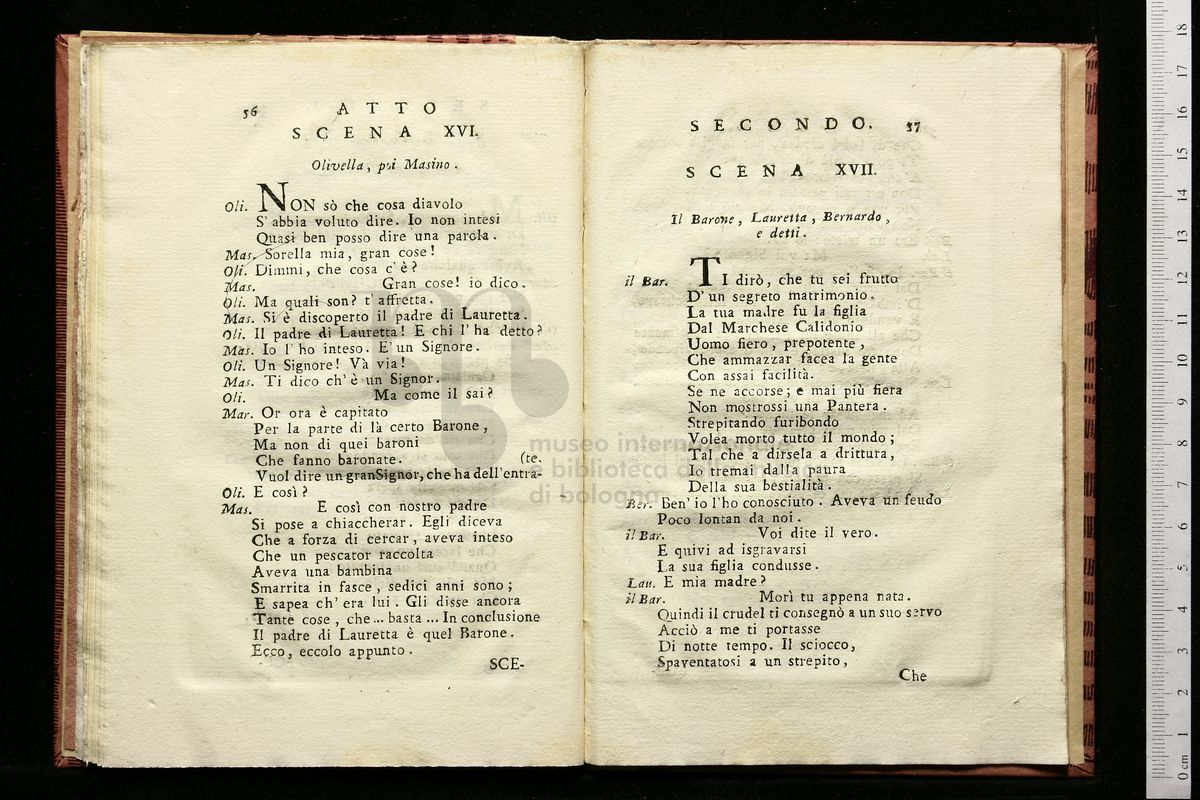 56 ATTO
SCENA XVI.
Olivella, poi Masino.
Oli. NON sò che cosa diavolo
S'abbia voluto dire. Io non intesi
Quasi ben posso dire una parola.
Mas. Sorella mia, gran cose!
Oli. Dimmi, che cosa c'è?
Mas. Gran cose! io dico.
Oli. Ma quali son? t'affretta.
Mas. Si è discoperto il padre di Lauretta.
Oli. Il padre di Lauretta! E chi l'ha detto?
Mas. Io l'ho inteso. E' un Signore.
Oli. Un Signore! Và via!
Mas. Ti dico ch'è un Signor.
Oli. Ma come il sai?
Mar. Or ora è capitato
Per la parte di là certo Barone,
Ma non di quei baroni
Che fanno baronate. (te.
Vuol dire un gran Signor, che ha dell'entra-
Oli. E così?
Mas. E così con nostro padre
Si pose a chiaccherar. Egli diceva
Che a forza di cercar, aveva inteso
Che un pescator raccolta
Aveva una bambina
Smarrita in fasce, sedici anni sono;
E sapea ch'era lui. Gli disse ancora
Tante cose, che ... basta ... In conclusione
Il padre di Lauretta è quel Barone.
Ecco, eccolo appunto.
SCE-
SECONDO. 57
SCENA XVII.
Il Barone, Lauretta, Bernardo,
e detti.
il Bar. TI dirò, che tu sei frutto
D'un segreto matrimonio.
La tua madre fu la figlia
Dal Marchese Calidonio
Uomo fiero, prepotente,
Che ammazzar facea la gente
Con assai facilità.
Se ne accorse; e mai più fiera
Non mostrossi una Pantera.
Strepitando furibondo
Volea morto tutto il mondo;
Tal che a dirsela a drittura,
Io tremai dalla paura
Della sua bestialità.
Ber. Ben' io l'ho conosciuto. Aveva un feudo
Poco lontan da noi.
il Bar. Voi dite il vero.
E quivi ad isgravarsi
La sua figlia condusse.
Lau. E mia madre?
il Bar. Morì tu appena nata.
Quindi il crudel ti consegnò a un suo servo
Acciò a me ti portasse
Di notte tempo. Il sciocco,
Spaventatosi a un strepito,
Che
museo internazionale
e biblioteca della musica
di bologna
0 cm 1 2 3 4 5 6 7 8 9 10 11 12 13 14 15 16 17 18